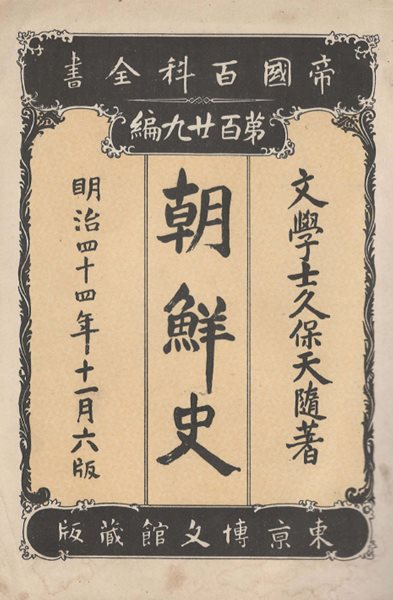 帝國百科全書
第百廿九編
文學士久保天隨著
朝鮮史
明治四十四年十一月六版
東京博文館蔵版